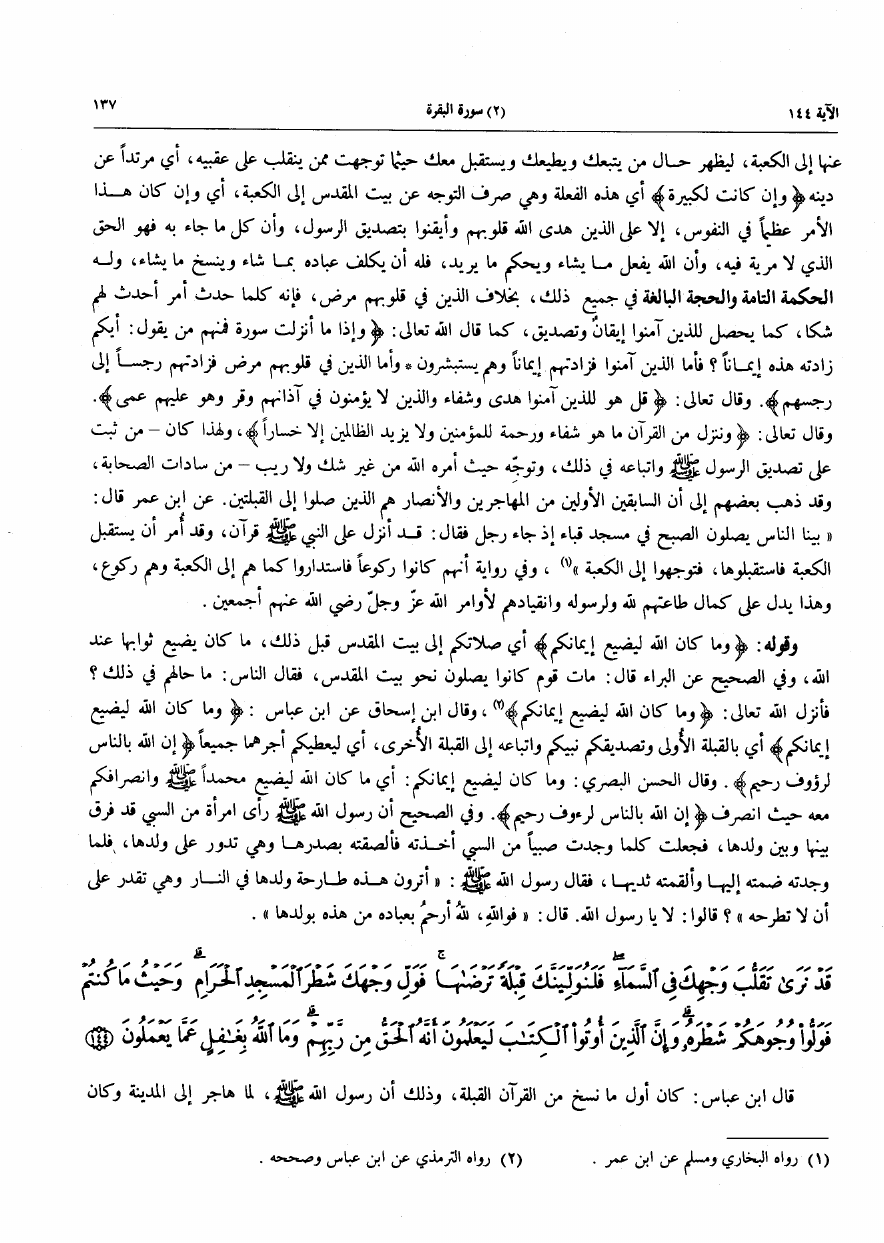 الآية ١٤٤
(٢) سورة البقرة
١٣٧
عنها إلى الكعبة، ليظهر حال من يتبعك ويطيعك ويستقبل معك حيثما توجهت ممن ينقلب على عقبيه، أي مرتداً عن
دينه ﴿وإن كانت لكبيرة﴾ أي هذه الفعلة وهي صرف التوجه عن بيت المقدس إلى الكعبة، أي وإن كان هذا
الأمر عظيماً في النفوس، إلا على الذين هدى الله قلوبهم وأيقنوا بتصديق الرسول، وأن كل ما جاء به فهو الحق
الذي لا مرية فيه، وأن الله يفعل ما يشاء ويحكم ما يريد، فله أن يكلف عباده بما شاء وينسخ ما يشاء، وله
الحكمة التامة والحجة البالغة في جميع ذلك، بخلاف الذين في قلوبهم مرض، فإنه كلما حدث أمر أحدث لهم
شكا، كما يحصل للذين آمنوا إيقانٌ وتصديق، كما قال الله تعالى: ﴿وإذا ما أنزلت سورة فمنهم من يقول: أيكم
زادته هذه إيماناً؟ فأما الذين آمنوا فزادتهم إيماناً وهم يستبشرون * وأما الذين في قلوبهم مرض فزادتهم رجساً إلى
رجسهم﴾. وقال تعالى: ﴿قل هو للذين آمنوا هدى وشفاء والذين لا يؤمنون في آذانهم وقر وهو عليهم عمى﴾.
وقال تعالى: ﴿وننزل من القرآن ما هو شفاء ورحمة للمؤمنين ولا يزيد الظالمين إلا خساراً﴾، ولهذا كان – من ثبت
على تصديق الرسول ﷺ واتباعه في ذلك، وتوجّه حيث أمره الله من غير شك ولا ريب – من سادات الصحابة،
وقد ذهب بعضهم إلى أن السابقين الأولين من المهاجرين والأنصار هم الذين صلوا إلى القبلتين. عن ابن عمر قال:
« بينا الناس يصلون الصبح في مسجد قباء إذ جاء رجل فقال: قد أنزل على النبي ﷺ قرآن، وقد أُمر أن يستقبل
الكعبة فاستقبلوها، فتوجهوا إلى الكعبة »(١)، وفي رواية أنهم كانوا ركوعاً فاستداروا كما هم إلى الكعبة وهم ركوع،
وهذا يدل على كمال طاعتهم لله ولرسوله وانقيادهم لأوامر الله عزّ وجلّ رضي الله عنهم أجمعين.
وقوله: ﴿وما كان الله ليضيع إيمانكم﴾ أي صلاتكم إلى بيت المقدس قبل ذلك، ما كان يضيع ثوابها عند
الله، وفي الصحيح عن البراء قال: مات قوم كانوا يصلون نحو بيت المقدس، فقال الناس: ما حالهم في ذلك؟
فأنزل الله تعالى: ﴿وما كان الله ليضيع إيمانكم﴾(٢)، وقال ابن إسحاق عن ابن عباس : ﴿وما كان الله ليضيع
إيمانكم﴾ أي بالقبلة الأولى وتصديقكم نبيكم واتباعه إلى القبلة الأُخرى، أي ليعطيكم أجرهما جميعاً ﴿إن الله بالناس
لرؤوف رحيم﴾. وقال الحسن البصري: وما كان ليضيع إيمانكم: أي ما كان الله ليضيع محمداً ﷺ وانصرافكم
معه حيث انصرف ﴿إن الله بالناس لرءوف رحيم﴾. وفي الصحيح أن رسول الله ﷺ رأى امرأة من السبي قد فرق
بينها وبين ولدها، فجعلت كلما وجدت صبياً من السبي أخذته فألصقته بصدرها وهي تدور على ولدها، فلما
وجدته ضمته إليها وألقمته ثديها، فقال رسول الله ﷺ: « أترون هذه طارحة ولدها في النار وهي تقدر على
أن لا تطرحه »؟ قالوا: لا يا رسول الله. قال: « فواللهِ، للهُ أرحمُ بعباده من هذه بولدها ».
قَدْ نَرَىٰ تَقَلُّبَ وَجْهِكَ فِي السَّمَآءِ ۖ فَلَنُوَلِّيَنَّكَ قِبْلَةً تَرْضَىٰهَا ۚ فَوَلِّ وَجْهَكَ شَطْرَ الْمَسْجِدِ الْحَرَامِ ۚ وَحَيْثُ مَا كُنتُمْ
فَوَلُّوا۟ وُجُوهَكُمْ شَطْرَهُۥ ۗ وَإِنَّ الَّذِينَ أُوتُوا۟ الْكِتَٰبَ لَيَعْلَمُونَ أَنَّهُ الْحَقُّ مِن رَّبِّهِمْ ۗ وَمَا اللَّهُ بِغَٰفِلٍ عَمَّا يَعْمَلُونَ ١٤٤
قال ابن عباس: كان أول ما نسخ من القرآن القبلة، وذلك أن رسول الله ﷺ، لما هاجر إلى المدينة وكان
(١) رواه البخاري ومسلم عن ابن عمر.
(٢) رواه الترمذي عن ابن عباس وصححه.